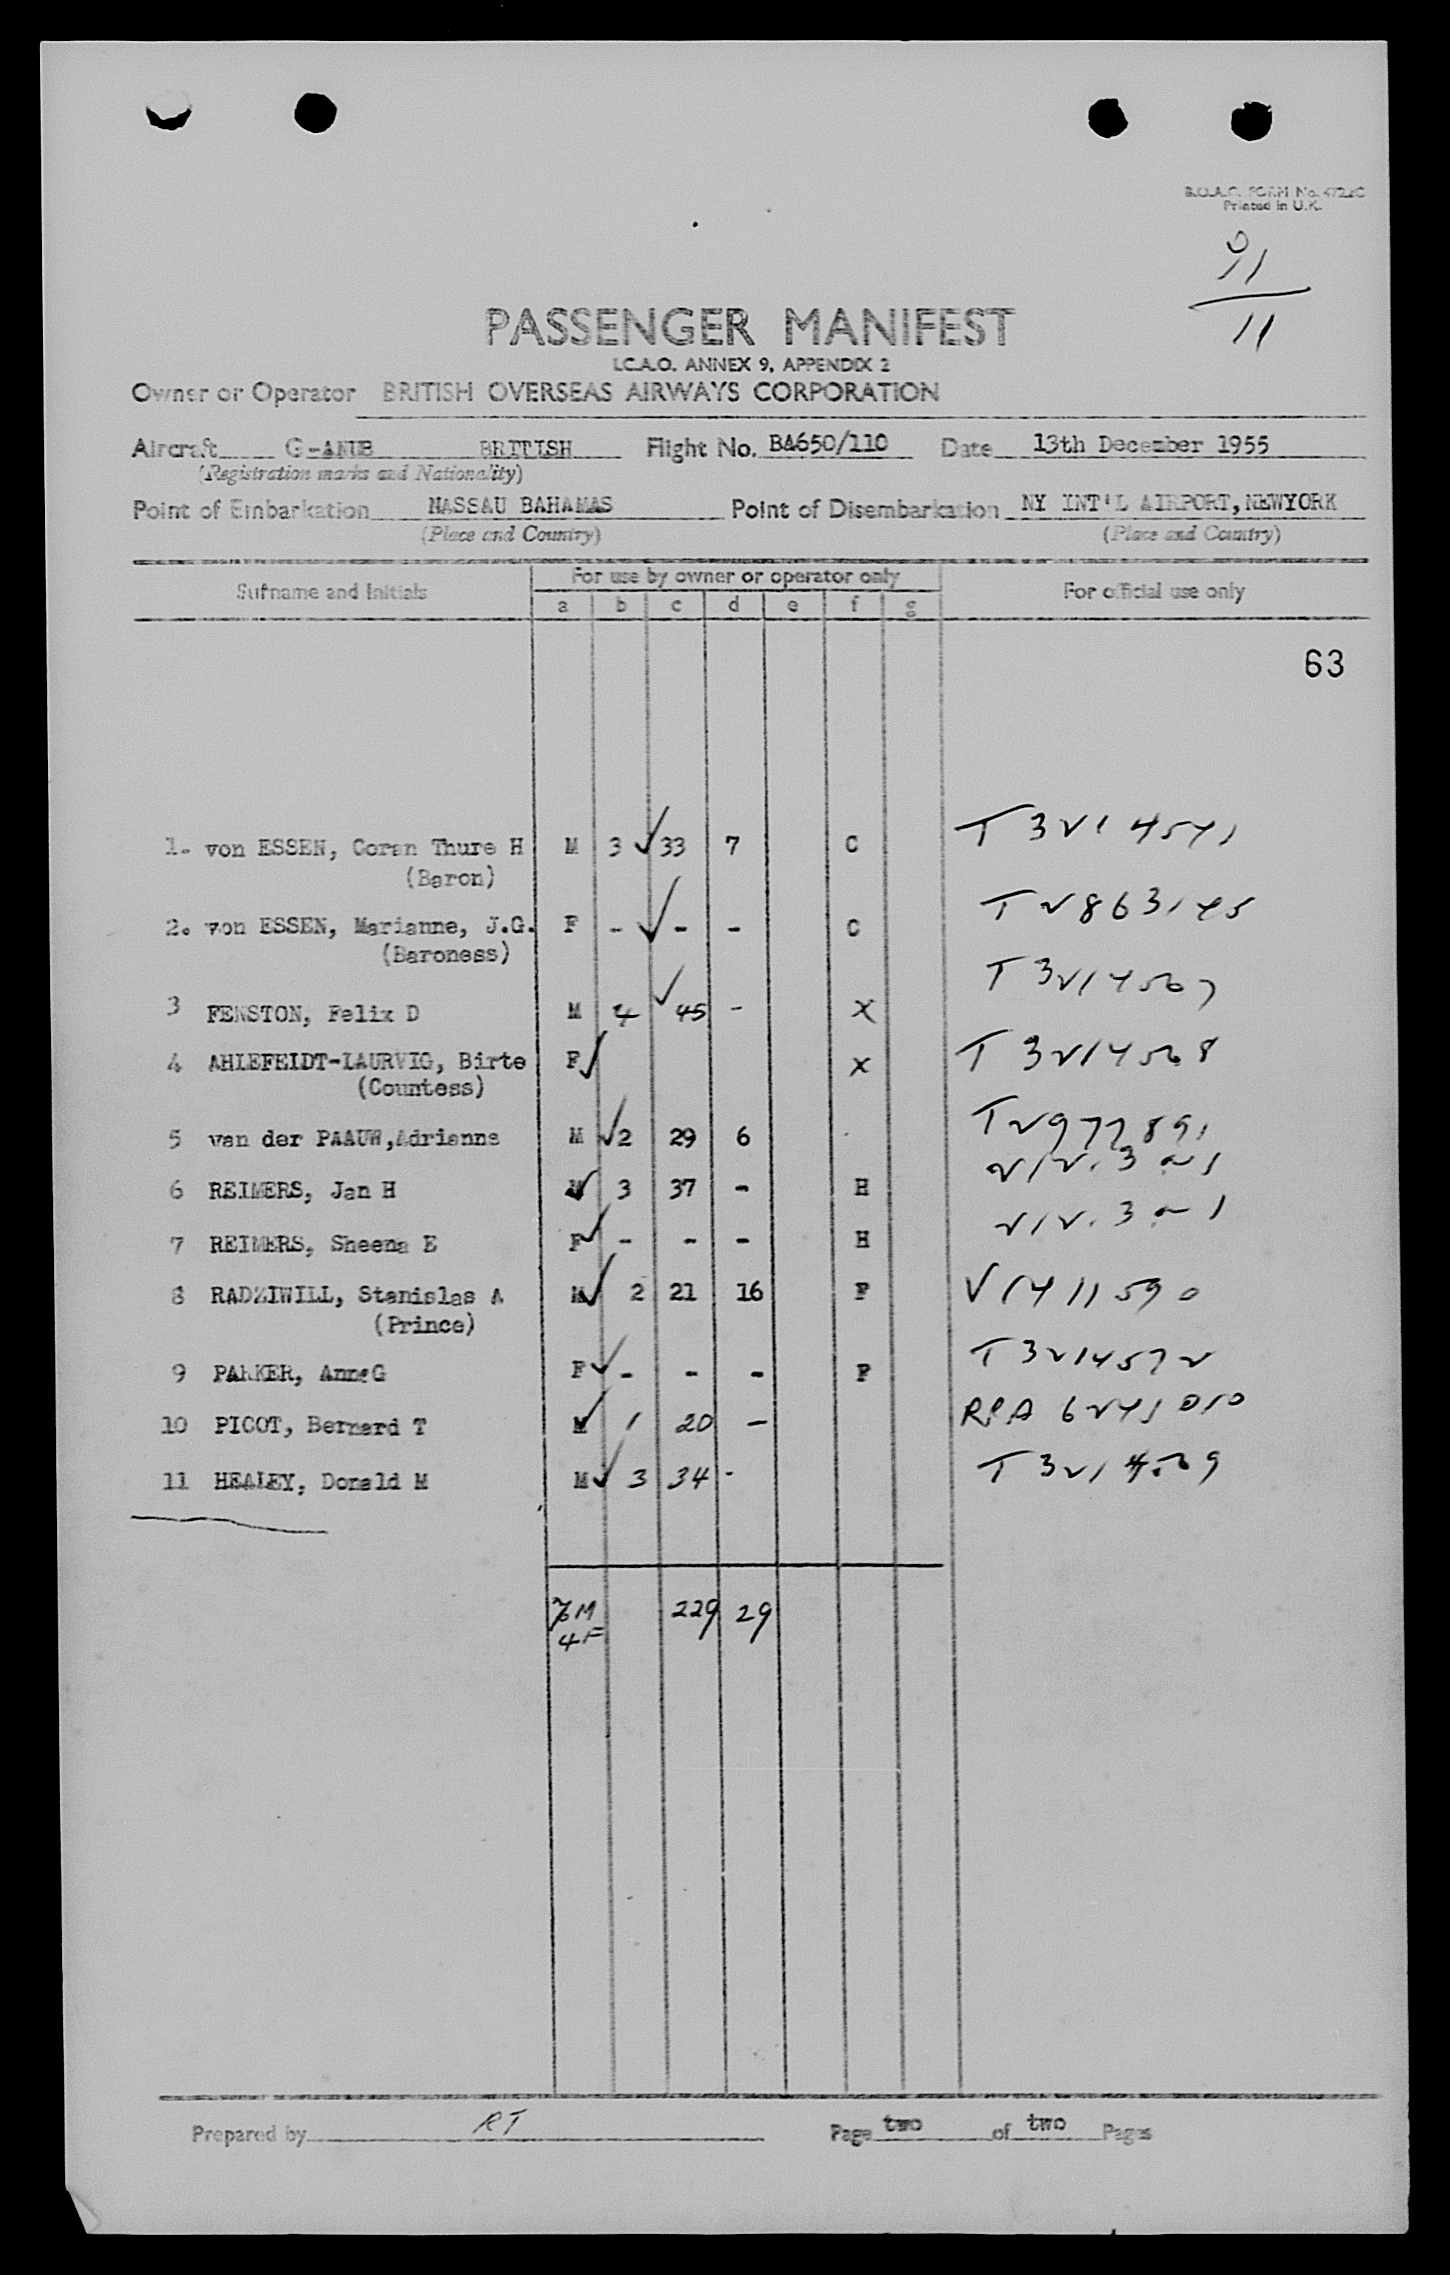 B.O.A.C. FORM No. 472.2C
Printed in U.K.
11
PASSENGER MANIFEST
I.C.A.O. ANNEX 9, APPENDIX 2
Owner or Operator BRITISH OVERSEAS AIRWAYS CORPORATION
Aircraft G-ANUB BRITISH Flight No. BA650/110 Date 13th December 1955
(Registration marks and Nationality)
Point of Embarkation NASSAU BAHAMAS Point of Disembarkation NY INT'L AIRPORT,NEWYORK
(Place and Country) (Place and Country)
Surname and Initials For use by owner or operator only For official use only
a b c d e f g
63
1. von ESSEN, Goran Thure H M 3 33 7 C T 3214541
(Baron)
2. von ESSEN, Marianne, J.G. F - - - C T 2863145
(Baroness)
3 FENSTON, Felix D M 4 45 - X T 3214567
4 AHLEFELDT-LAURVIG, Birte F X T 3214568
(Countess)
5 van der PAAUW,Adrienne M 2 29 6 T 2977891
6 REIMERS, Jan H M 3 37 - H
7 REIMERS, Sheena E F - - - H
8 RADZIWILL, Stanislas A M 2 21 16 F V 1411590
(Prince)
9 PARKER, Anne G F - - - F T 3214572
10 PICOT, Bernard T M 1 20 -
11 HEALEY, Donald M M 3 34 - T 3214569
7M 229 29
4F
Prepared by RT Page two of two Pages